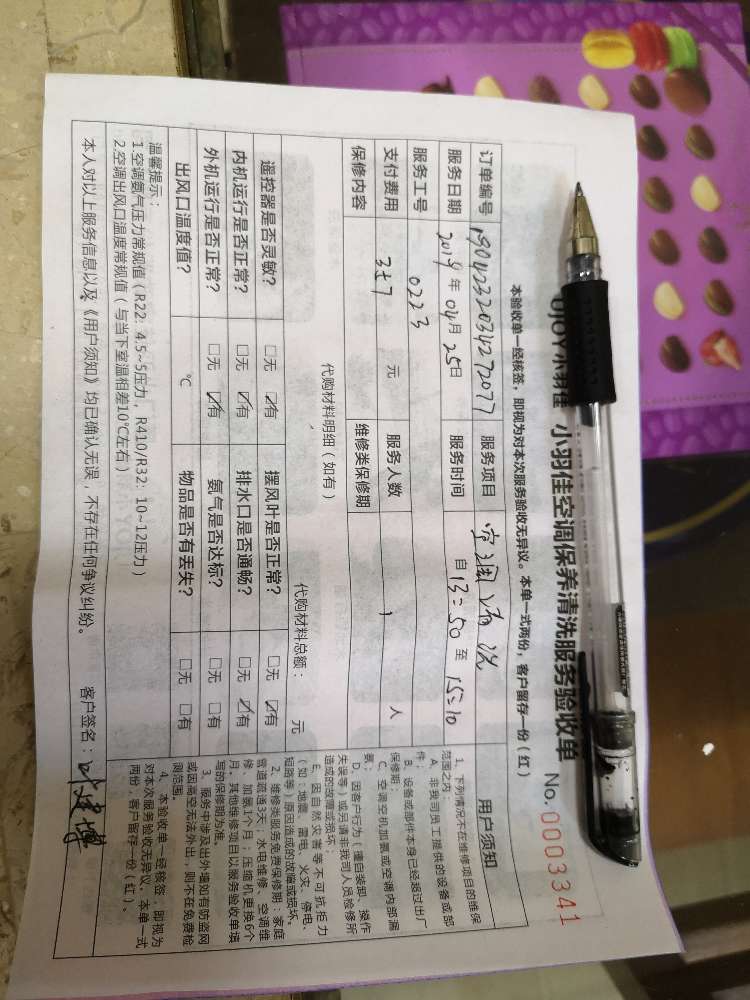 UJOY小羽佳 小羽佳空调保养清洗服务验收单
No.0003341
本验收单一经核签，即视为对本次服务验收无异议。本单一式两份，客户留存一份（红）
订单编号 1904232034272077 服务项目 空调清洗
服务日期 2019年04月25日 服务时间 自13:50至15:10
服务工号 0223
支付费用 元 服务人数 1 人
保修内容 维修类保修期
代购材料明细（如有） 代购材料总额： 元
遥控器是否灵敏？ □无 ☑有 摆风叶是否正常？ □无 ☑有
内机运行是否正常？ □无 ☑有 排水口是否通畅？ □无 ☑有
外机运行是否正常？ □无 ☑有 氨气是否达标？ □无 □有
出风口温度值？ ℃ 物品是否有丢失？ □无 □有
温馨提示：
1.空调氨气压力常规值（R22：4.5~5压力，R410/R32：10~12压力）
2.空调出风口温度常规值（与当下室温相差10℃左右）
用户须知
1、下列情况不在维修项目的维保
范围之内：
A、非我司员工提供的设备或部
件；
B、设备或部件本身已经超过出厂
保修期；
C、空调空机加氨或空调内部漏
氨；
D、因客户行为（擅自装卸、操作
失误等）或另请非我司人员检修所
造成的故障或损坏；
E、因自然灾害等不可抗拒力
（如：地震、雷电、火灾、停电、
短路等）原因造成的故障或损坏。
2、维修类服务免费保修期：家庭
管道疏通3天；水电维修、空调维
修、加氨1个月；压缩机更换6个
月，其他维修项目以服务验收单填
写的保修期为准。
3、服务中涉及出外墙如有防盗网
或因高空无法外出，则不在免费检
测范围。
4、本验收单一经核签，即视为
对本次服务验收无异议，本单一式
两份，客户留存一份（红）。
本人对以上服务信息以及《用户须知》均已确认无误，不存在任何争议纠纷。 客户签名：